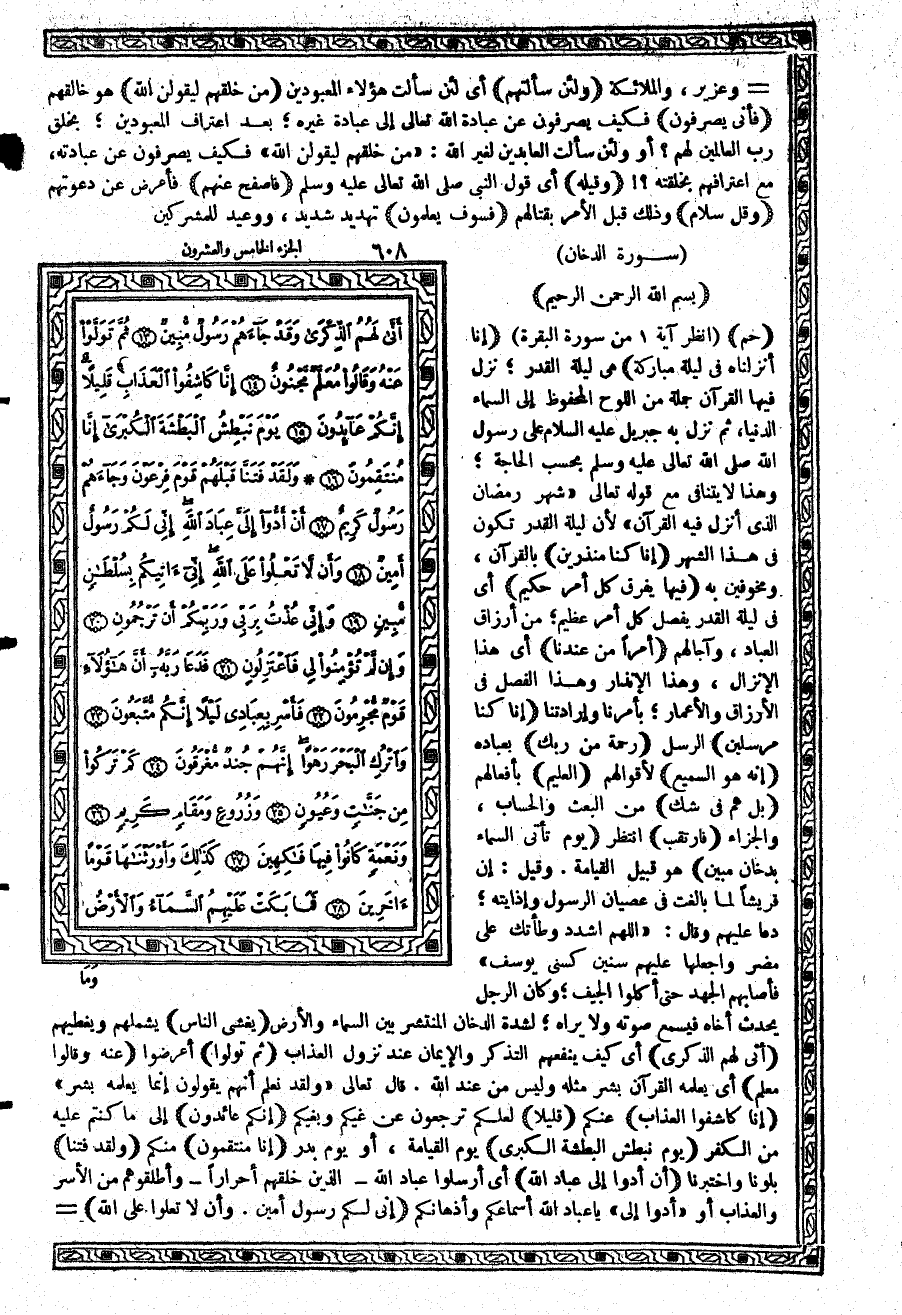 = وعزير ، والملائكة (ولئن سألتهم) أى لئن سألت هؤلاء المعبودين (من خلقهم ليقولن الله) هو خالقهم
(فأنى يصرفون) فكيف يصرفون عن عبادة الله تعالى إلى عبادة غيره ؛ بعد اعتراف المعبودين ؛ بخلق
رب العالمين لهم ؟ أو ولئن سألت العابدين لغير الله : «من خلقهم ليقولن الله» فكيف يصرفون عن عبادته،
مع اعترافهم بخلقته ؟! (وقيله) أى قول النبي صلى الله تعالى عليه وسلم (فاصفح عنهم) فأعرض عن دعوتهم
(وقل سلام) وذلك قبل الأمر بقتالهم (فسوف يعلمون) تهديد شديد ، ووعيد للمشركين
(سورة الدخان)
(بسم الله الرحمن الرحيم)
(حم) (انظر آية ١ من سورة البقرة) (إنا
أنزلناه فى ليلة مباركة) هى ليلة القدر ؛ نزل
فيها القرآن جملة من اللوح المحفوظ إلى السماء
الدنيا، ثم نزل به جبريل عليه السلام على رسول
الله صلى الله تعالى عليه وسلم بحسب الحاجة ؛
وهذا لا يتنافى مع قوله تعالى «شهر رمضان
الذى أنزل فيه القرآن» لأن ليلة القدر تكون
فى هذا الشهر (إنا كنا منذرين) بالقرآن ،
ومخوفين به (فيها يفرق كل أمر حكيم) أى
فى ليلة القدر يفصل كل أمر عظيم؛ من أرزاق
العباد ، وآجالهم (أمراً من عندنا) أى هذا
الإنزال ، وهذا الإنذار وهذا الفصل فى
الأرزاق والأعمار ؛ بأمرنا وإرادتنا (إنا كنا
مرسلين) الرسل (رحمة من ربك) بعباده
(إنه هو السميع) لأقوالهم (العليم) بأفعالهم
(بل هم فى شك) من البعث والحساب ،
والجزاء (فارتقب) انتظر (يوم تأتى السماء
بدخان مبين) هو قبيل القيامة . وقيل : إن
قريشاً لما بالغت فى عصيان الرسول وإذايته ؛
دعا عليهم وقال : «اللهم اشدد وطأتك على
مضر واجعلها عليهم سنين كسنى يوسف»
فأصابهم الجهد حتى أكلوا الجيف ؛ وكان الرجل
٦٠٨ الجزء الخامس والعشرون
أَنَّىٰ لَهُمُ ٱلذِّكْرَىٰ وَقَدْ جَآءَهُمْ رَسُولٌ مُّبِينٌ ١٣ ثُمَّ تَوَلَّوْاْ
عَنْهُ وَقَالُواْ مُعَلَّمٌ مَّجْنُونٌ ١٤ إِنَّا كَاشِفُواْ ٱلْعَذَابِ قَلِيلًا
إِنَّكُمْ عَآئِدُونَ ١٥ يَوْمَ نَبْطِشُ ٱلْبَطْشَةَ ٱلْكُبْرَىٰ إِنَّا
مُنتَقِمُونَ ١٦ * وَلَقَدْ فَتَنَّا قَبْلَهُمْ قَوْمَ فِرْعَوْنَ وَجَآءَهُمْ
رَسُولٌ كَرِيمٌ ١٧ أَنْ أَدُّوٓاْ إِلَىَّ عِبَادَ ٱللَّهِ إِنِّى لَكُمْ رَسُولٌ
أَمِينٌ ١٨ وَأَن لَّا تَعْلُواْ عَلَى ٱللَّهِ إِنِّىٓ ءَاتِيكُم بِسُلْطَٰنٍ
مُّبِينٍ ١٩ وَإِنِّى عُذْتُ بِرَبِّى وَرَبِّكُمْ أَن تَرْجُمُونِ ٢٠
وَإِن لَّمْ تُؤْمِنُواْ لِى فَٱعْتَزِلُونِ ٢١ فَدَعَا رَبَّهُۥٓ أَنَّ هَٰٓؤُلَآءِ
قَوْمٌ مُّجْرِمُونَ ٢٢ فَأَسْرِ بِعِبَادِى لَيْلًا إِنَّكُم مُّتَّبَعُونَ ٢٣
وَٱتْرُكِ ٱلْبَحْرَ رَهْوًا إِنَّهُمْ جُندٌ مُّغْرَقُونَ ٢٤ كَمْ تَرَكُواْ
مِن جَنَّٰتٍ وَعُيُونٍ ٢٥ وَزُرُوعٍ وَمَقَامٍ كَرِيمٍ ٢٦
وَنَعْمَةٍ كَانُواْ فِيهَا فَٰكِهِينَ ٢٧ كَذَٰلِكَ وَأَوْرَثْنَٰهَا قَوْمًا
ءَاخَرِينَ ٢٨ فَمَا بَكَتْ عَلَيْهِمُ ٱلسَّمَآءُ وَٱلْأَرْضُ
وَمَا
يحدث أخاه فيسمع صوته ولا يراه ؛ لشدة الدخان المنتشر بين السماء والأرض (يغشى الناس) يشملهم ويغطيهم
(أنى لهم الذكرى) أى كيف ينفعهم التذكر والإيمان عند نزول العذاب (ثم تولوا) أعرضوا (عنه وقالوا
معلم) أى يعلمه القرآن بشر مثله وليس من عند الله . قال تعالى «ولقد نعلم أنهم يقولون إنما يعلمه بشر»
(إنا كاشفوا العذاب) عنكم (قليلا) لعلكم ترجعون عن غيكم وبغيكم (إنكم عائدون) إلى ما كنتم عليه
من الكفر (يوم نبطش البطشة الكبرى) يوم القيامة ، أو يوم بدر (إنا منتقمون) منكم (ولقد فتنا)
بلونا واختبرنا (أن أدوا إلى عباد الله) أى أرسلوا عباد الله ــ الذين خلقهم أحراراً ــ وأطلقوهم من الأسر
والعذاب أو «أدوا إلى» ياعباد الله أسماعكم وأذهانكم (إنى لكم رسول أمين . وأن لا تعلوا على الله) =